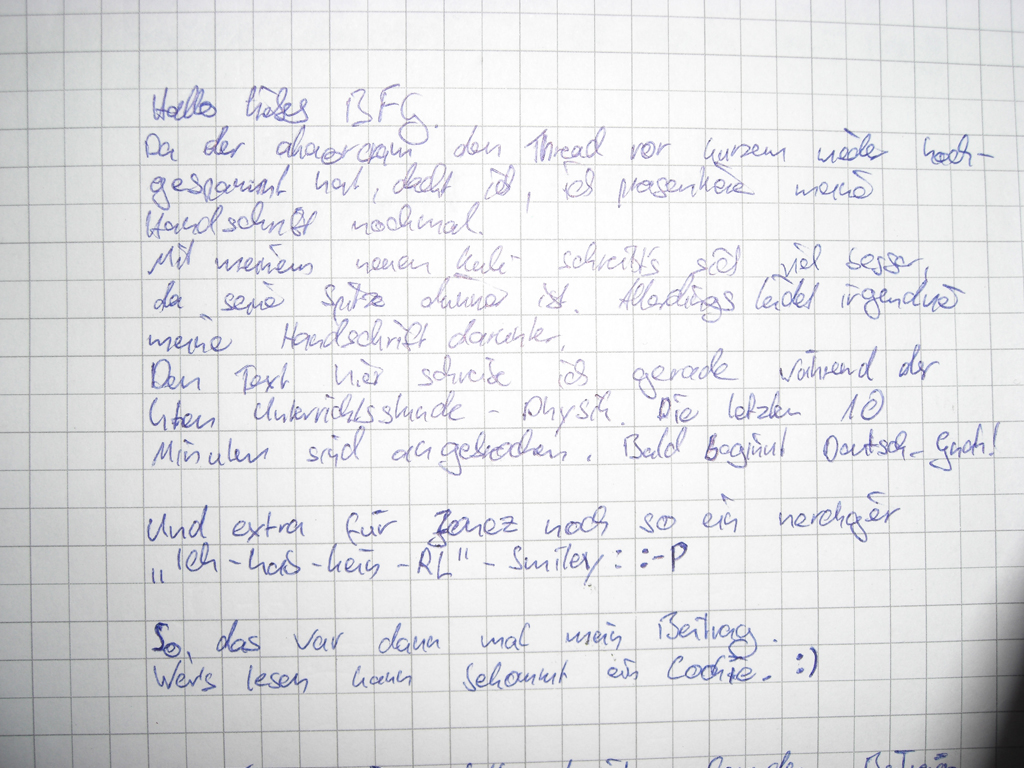 Hallo liebes BFG.
Da der den Thread vor kurzem wieder hoch-
gespammt hat, dacht ich, ich präsentiere meine
Handschrift nochmal.
Mit meinem neuen Kuli schreibts sich viel besser,
da seine Spitze dünner ist. Allerdings leidet irgendwie
meine Handschrift darunter.
Den Text hier schreibe ich gerade während der
4ten Unterrichtsstunde - Physik. Die letzten 10
Minuten sind angebrochen. Bald beginnt Deutsch -
Und extra für noch so ein nerdiger
„Ich-hab-kein-RL"-Smiley: :-P
So, das war dann mal mein Beitrag.
Wers lesen kann bekommt ein Cookie. :)